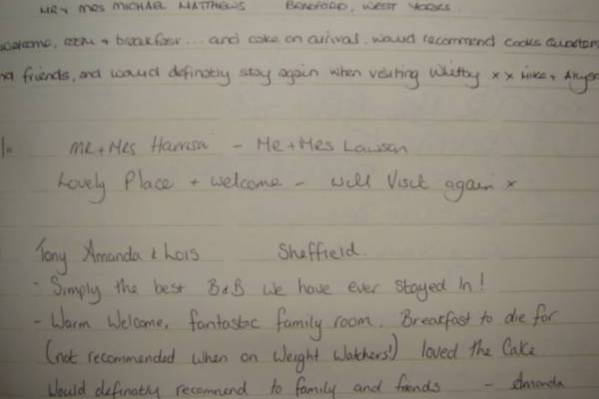 MR + MRS MICHAEL MATTHEWS BRADFORD, WEST YORKS.
welcome, room + breakfast... and cake on arrival. Would recommend Cooks Quarters
friends, and would definatly stay again when visiting Whitby x x Mike +
MR + MRS Harrison - Mr + Mrs Lawson
Lovely Place + welcome - will Visit again x
Tony Amanda & Lois Sheffield.
- Simply the best B&B we have ever stayed in!
- Warm Welcome, fantastic family room. Breakfast to die for
(not recommended when on Weight Watchers!) loved the Cake
Would definatly recommend to family and friends - Amanda